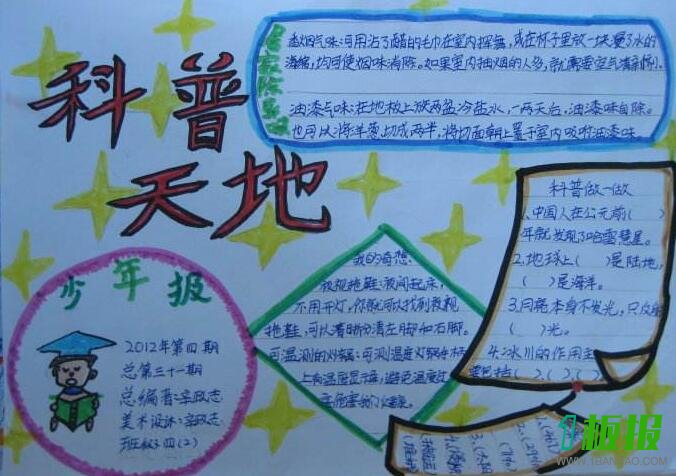 科普
天地
居家除臭
香烟气味:可用沾了醋的毛巾在室内挥舞,或在杯子里放一块蘸了水的
海绵,均可使烟味消除。如果室内抽烟的人多,就需要空气清新剂。
油漆气味:在地板上放两盆冷盐水,一两天后,油漆味自除。
也可以将洋葱切成两半,将切面朝上置于室内吸附油漆味。
少年报
2012年第四期
总第三十一期
总编著:辛政志
美术设计:辛政志
班级:四(2)
我的奇想:
夜视拖鞋:夜间起床,
不用开灯,你就可以找到夜视
拖鞋,可以清晰分清左脚和右脚。
可温测的炒锅:可测温度炒锅手柄
上有温度显示屏,避免温度过
科普做一做
1.中国人在公元前( )
年就发现了哈雷彗星。
2.地球上( )是陆地,
( )是海洋。
3.月亮本身不发光,只反射
( )光。
4.冰川的作用主
要包括( )、( )、( )
板报